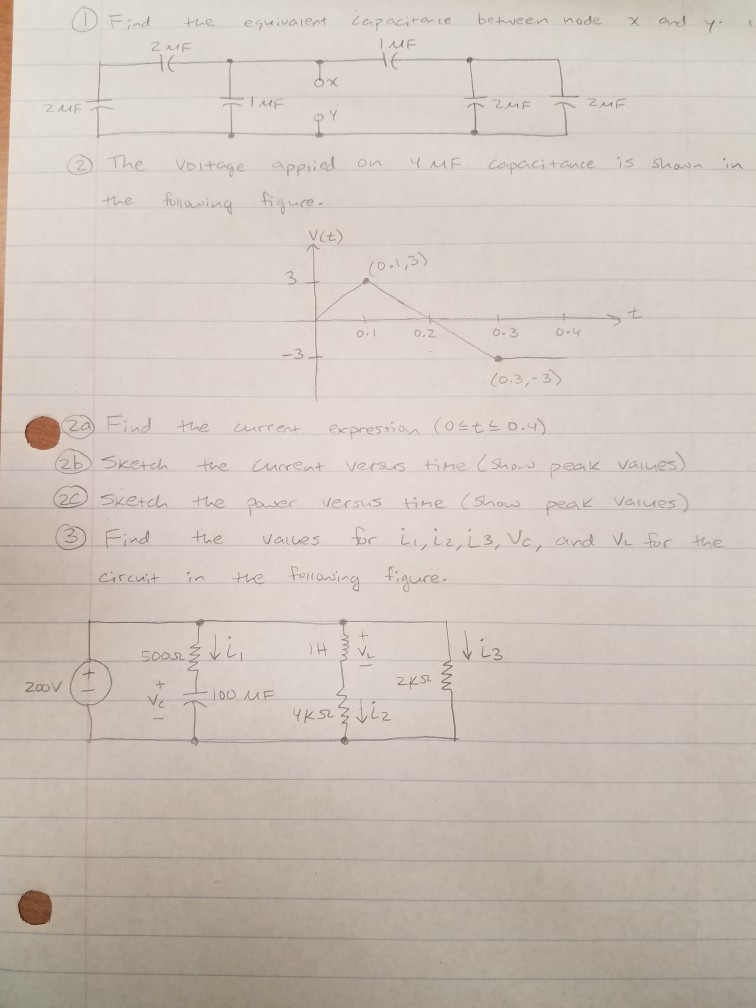 ① Find the equivalent capacitance between node x and y.
2 MF
1 MF
2MF
1 MF
x
Y
2MF
2MF
② The voltage applied on 4 MF capacitance is shown in
the following figure.
V(t)
3
(0.1,3)
0.1 0.2 0.3 0.4
t
-3
(0.3,-3)
2a Find the current expression (0≤t≤0.4)
2b Sketch the current versus time (show peak values)
2c Sketch the power versus time (show peak values)
③ Find the values for i1, i2, i3, Vc, and VL for the
circuit in the following figure.
200V
+
-
500Ω
↓i1
+
Vc
-
100 MF
1H
+
VL
-
4KΩ
↓i2
2KΩ
↓i3